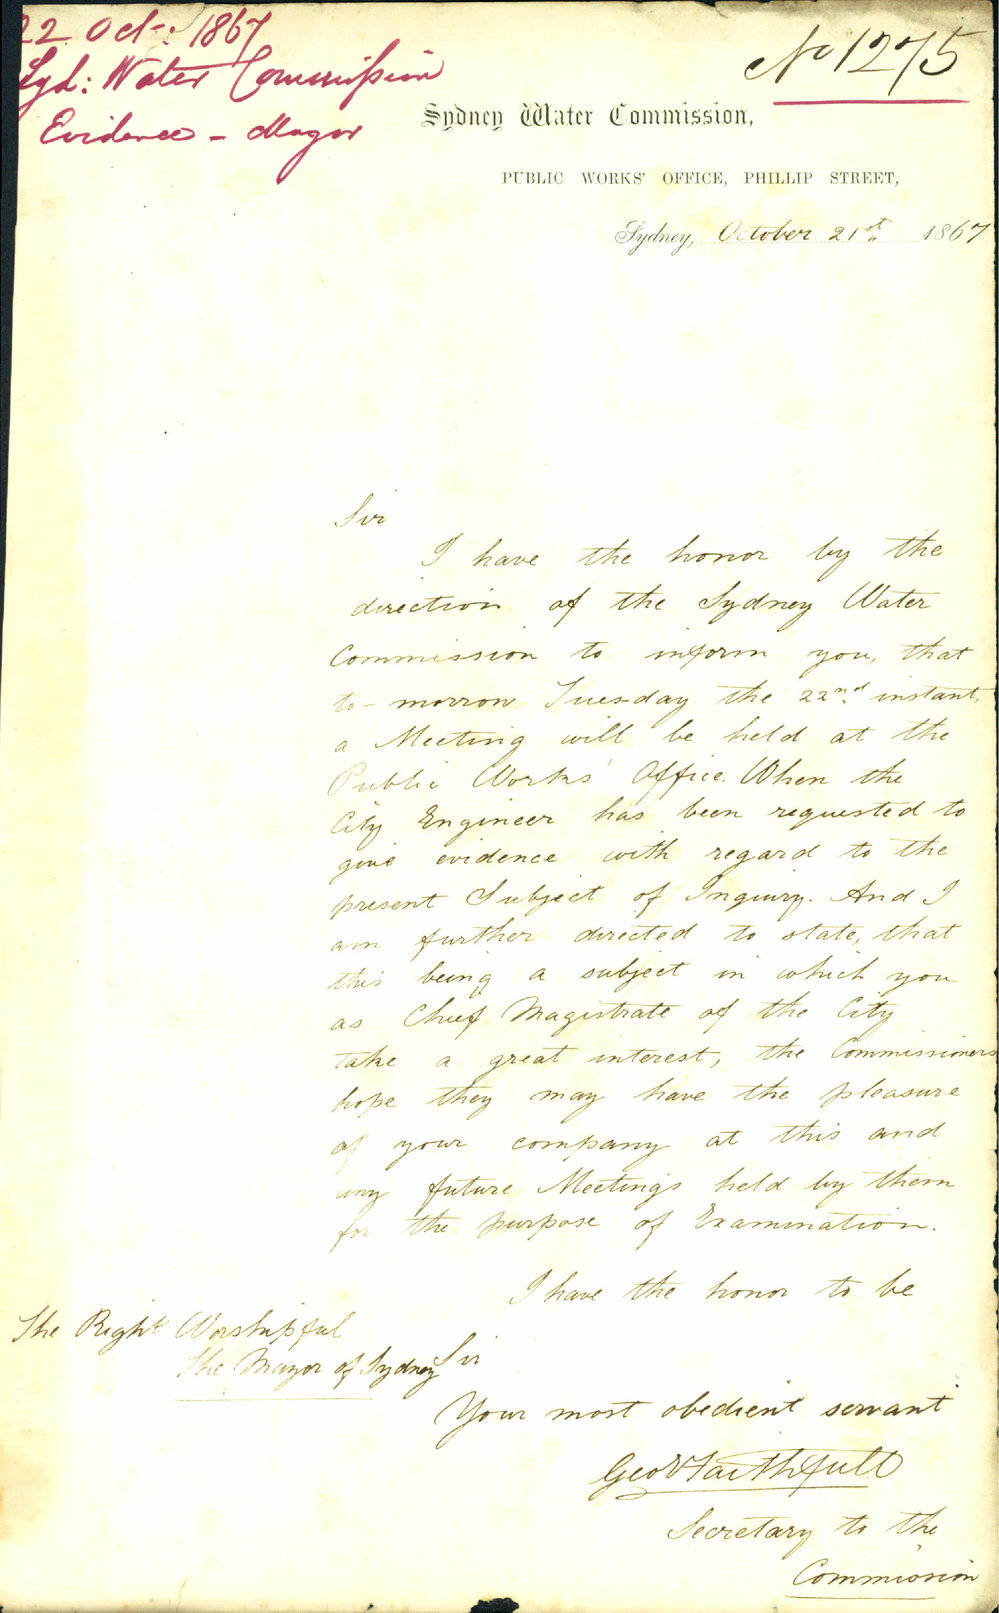 22 Oct: 1867
Syd: Water Commission
Evidence - Mayor
No 1275
Sydney Water Commission,
PUBLIC WORKS' OFFICE, PHILLIP STREET,
Sydney, October 21st 1867
Sir
I have the honor by the
direction of the Sydney Water
Commission to inform you, that
to-morrow Tuesday the 22nd instant,
a Meeting will be held at the
Public Works' Office. When the
City Engineer has been requested to
give evidence with regard to the
present Subject of Inquiry. And I
am further directed to state, that
this being a subject in which you
as Chief Magistrate of the City
take a great interest, the Commissioners
hope they may have the pleasure
of your company at this and
any future Meetings held by them
for the purpose of Examination.
I have the honor to be
Sir
Your most obedient servant
Geo Faithfull
Secretary to the
Commission
The Right Worshipful
The Mayor of Sydney